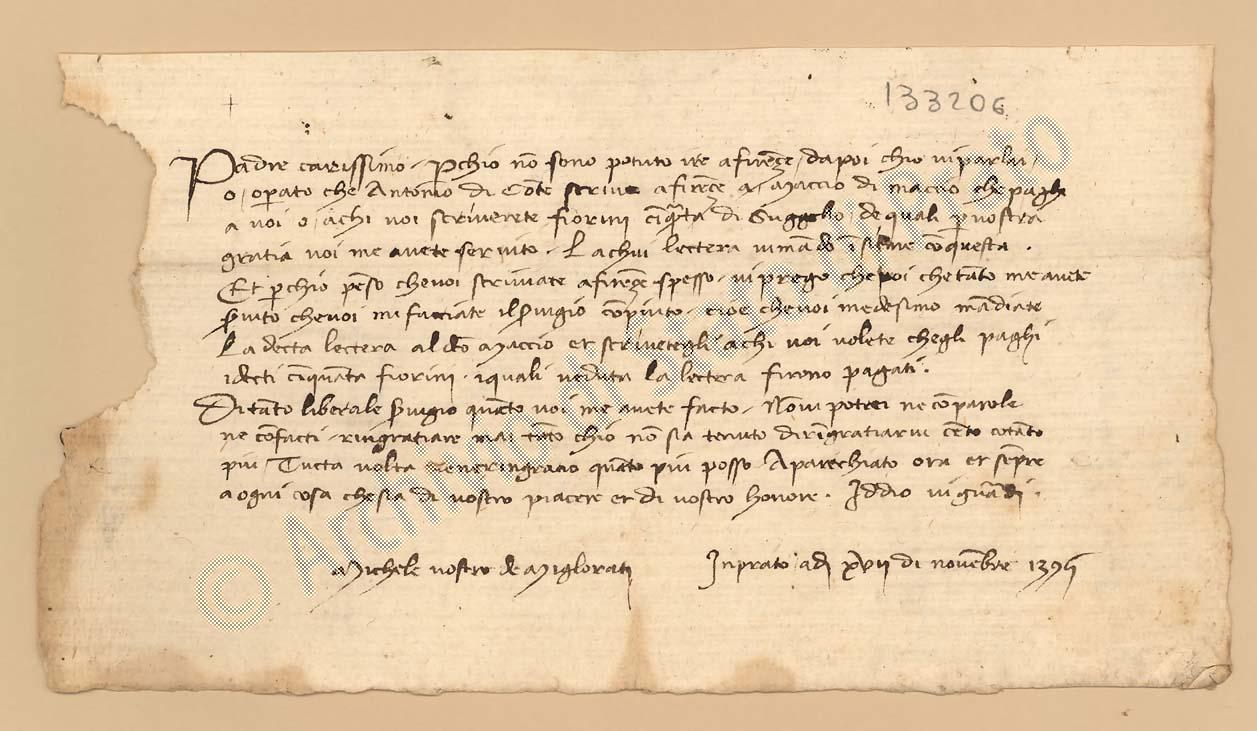 133206
Padre carissimo . Pchio nō sono potuto ire a firēze dapoi chio vi parlai,
o, operato che Antonio di Cōte scriva a firēze a Maccio di maccio che paghi
a voi o, achi voi scriverete fiorini cīqta di Suggello, de quali p vostra
gratia voi me avete servito . La chui lectera vi mādo īsieme cō questa .
Et pchio pēso che voi scriviate a firēze spesso . vi prego che poi che tāto me avete
Svito che voi mi facciate il Svigio cōpiuto . cioè che voi medesimo mādiate
La decta lectera al dco Maccio et scrivetegli achi voi volete chegli paghi
i decti cīquāta fiorini . i quali veduta la lectera firono pagati .
Di tāto liberale Svigio quāto voi me avete facto . Nō vi potrei ne cō parole
ne cō facti . ringratiare mai tāto chio nō sia tenuto di rīgratiarvi cēto cotāto
piu Tucta volta ve ne ringratio quāto piu posso Aparechiato ora et sepre
a ogni cosa che sia di vostro piacere et di vostro honore . Iddio vi guardi .
Michele vostro de Miglorati In prato adi xvii di novēbre 139
© Archivio di Stato di Prato